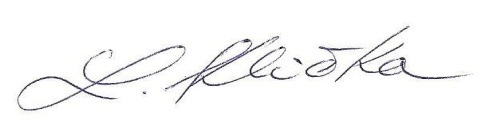 L. Klička